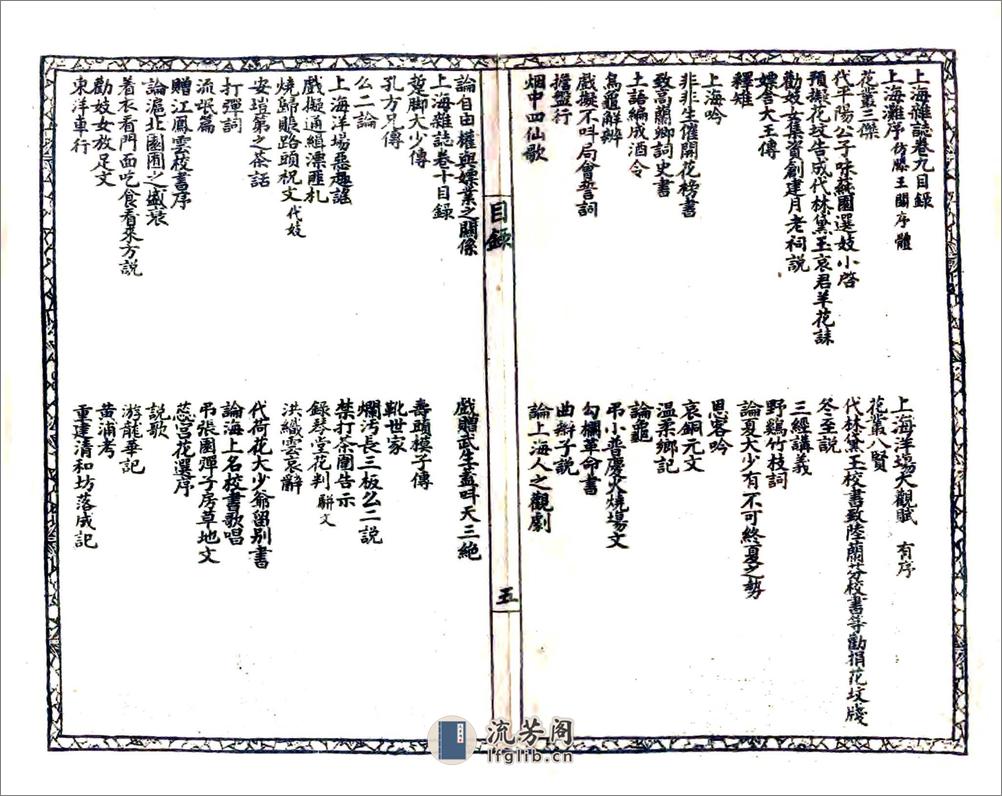 上海雜誌卷九目錄
上海灘序 仿滕王閣序體
上海洋塲大觀賦 有序
花叢三傑
花叢八賢
代平陽公子味蒓園選妓小啓
代林黛玉校書致陸蘭芬校書等勸捐花坟牋
預擬花坟告成代林黛玉哀君羊花誄
冬至說
勸妓女集資創建月老祠說
三經講義
嫖舍大王傳
野鷄竹枝詞
釋雉
論夏大少有不可終夏之勢
上海吟
思客吟
非非生催開花榜書
哀銅元文
致高蘭卿詞史書
温柔鄉記
土語編成酒令
論龜
烏龜解辨
吊小普慶火燒塲文
戲擬不叫局會誓詞
勾欄革命書
擔盤行
曲辮子說
烟中四仙歌
論上海人之觀劇
目錄
五
論自由權與嫖業之關係
戲贈武生蓋叫天三絶
上海雜誌卷十目錄
蹩脚大少傳
壽頭模子傳
孔方兄傳
靴世家
么二論
爛汚長三板么二說
上海洋塲惡趣謡
禁打茶圍告示
戲擬通緝漂匪札
録琴堂花判 駢文
燒歸賬路頭祝文 代妓
洪織雲哀辭
安塏第之茶話
代荷花大少爺留别書
打彈詞
論海上名校書歌唱
流氓篇
吊張園彈子房草地文
贈江鳳雲校書序
慈宫花選序
論滬北園囿之盛衰
説歌
着衣看門面吃食看來方說
游龍華記
勸妓女放足文
黄浦考
東洋車行
重建清和坊落成記
流芳阁
lfglib.cn